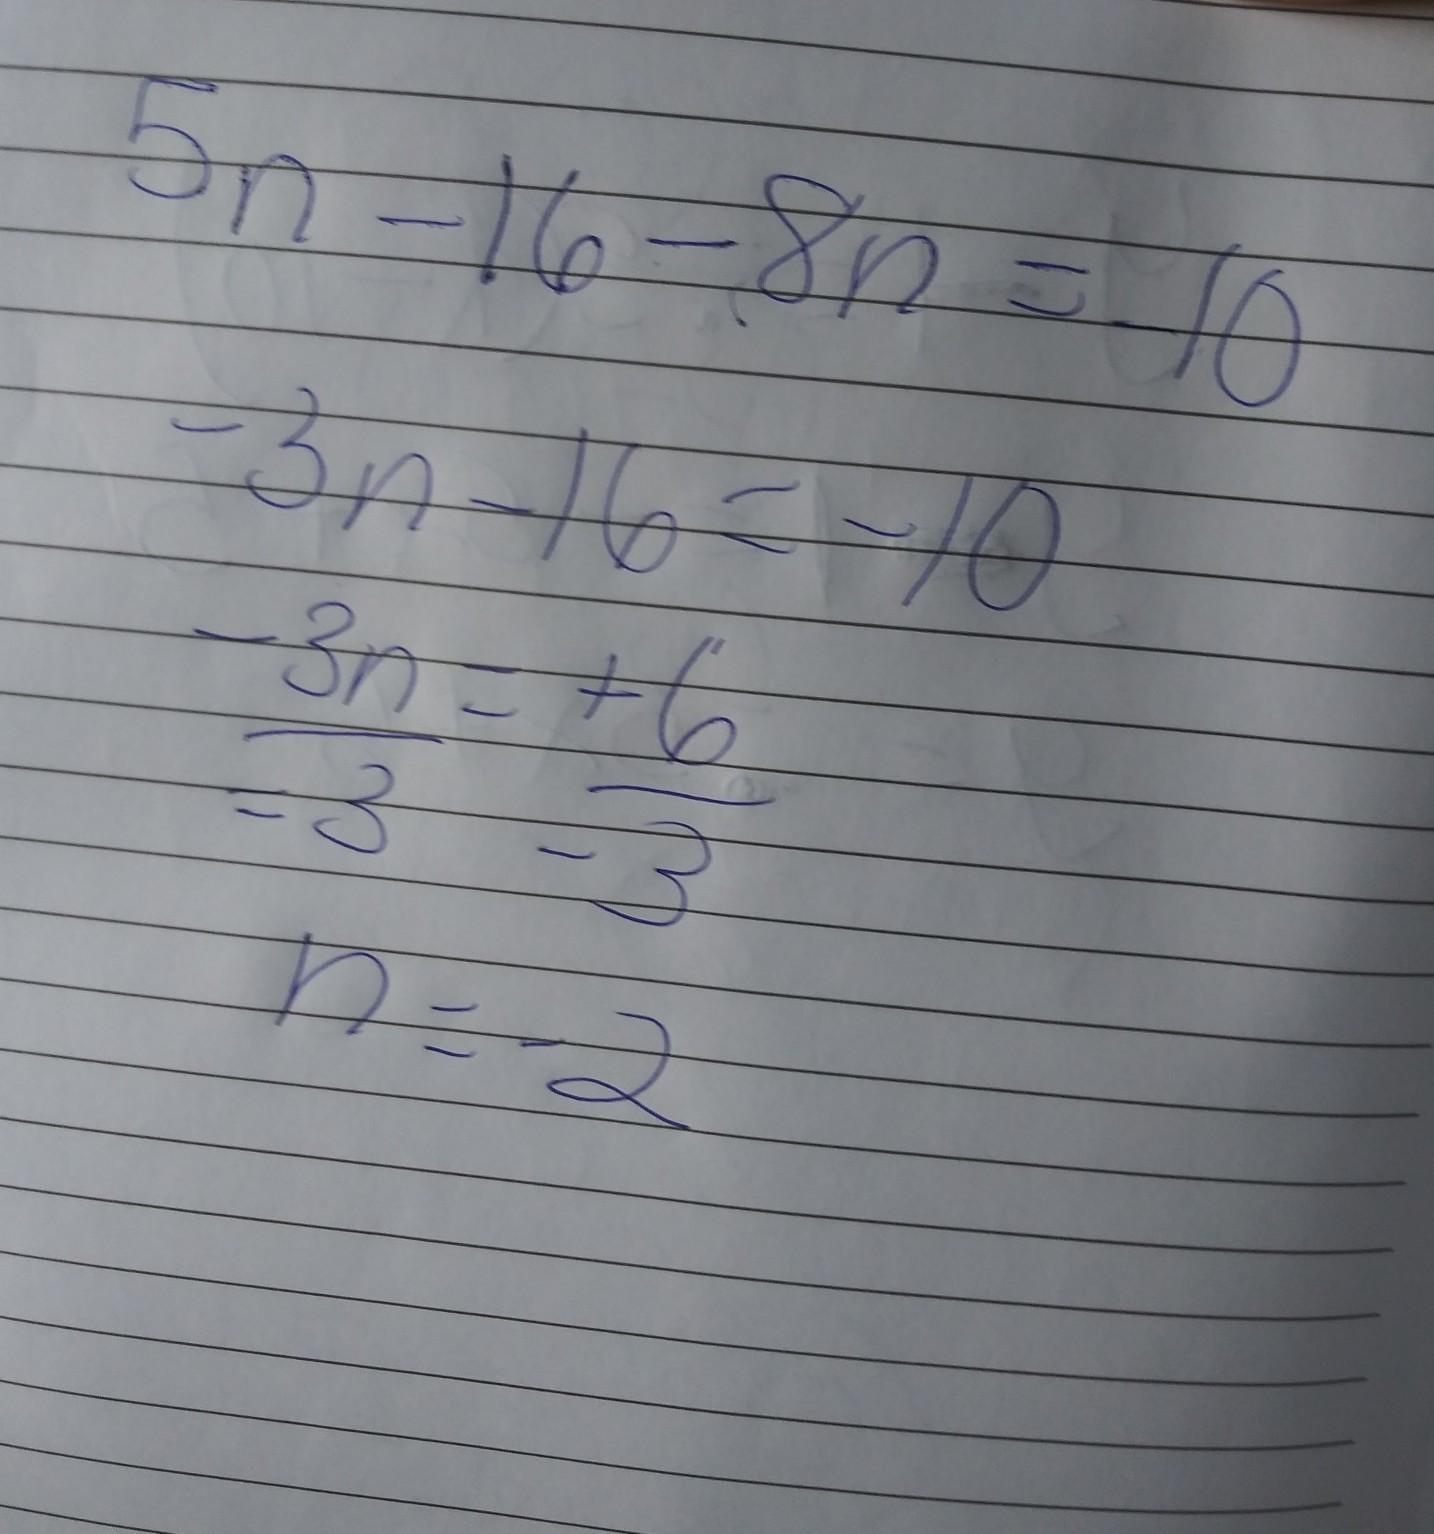 5n - 16 - 8n = -10
-3n - 16 = -10
-3n = +6
-3 -3
n = -2